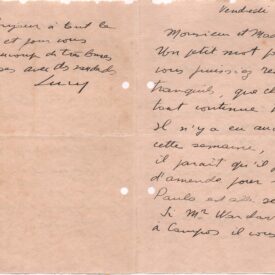 à tout la
et pour vous
beaucoup de très bonnes
Lucy
Vendredi
Monsieur et Mad
Un petit mot p
vous puissiez re
tranquils, que ch
tout continue
Il n'y a eu au
cette semaine,
il paraît qu'il
d'amende pour
Paulo est allé se
Si Mr
à Campos il vous